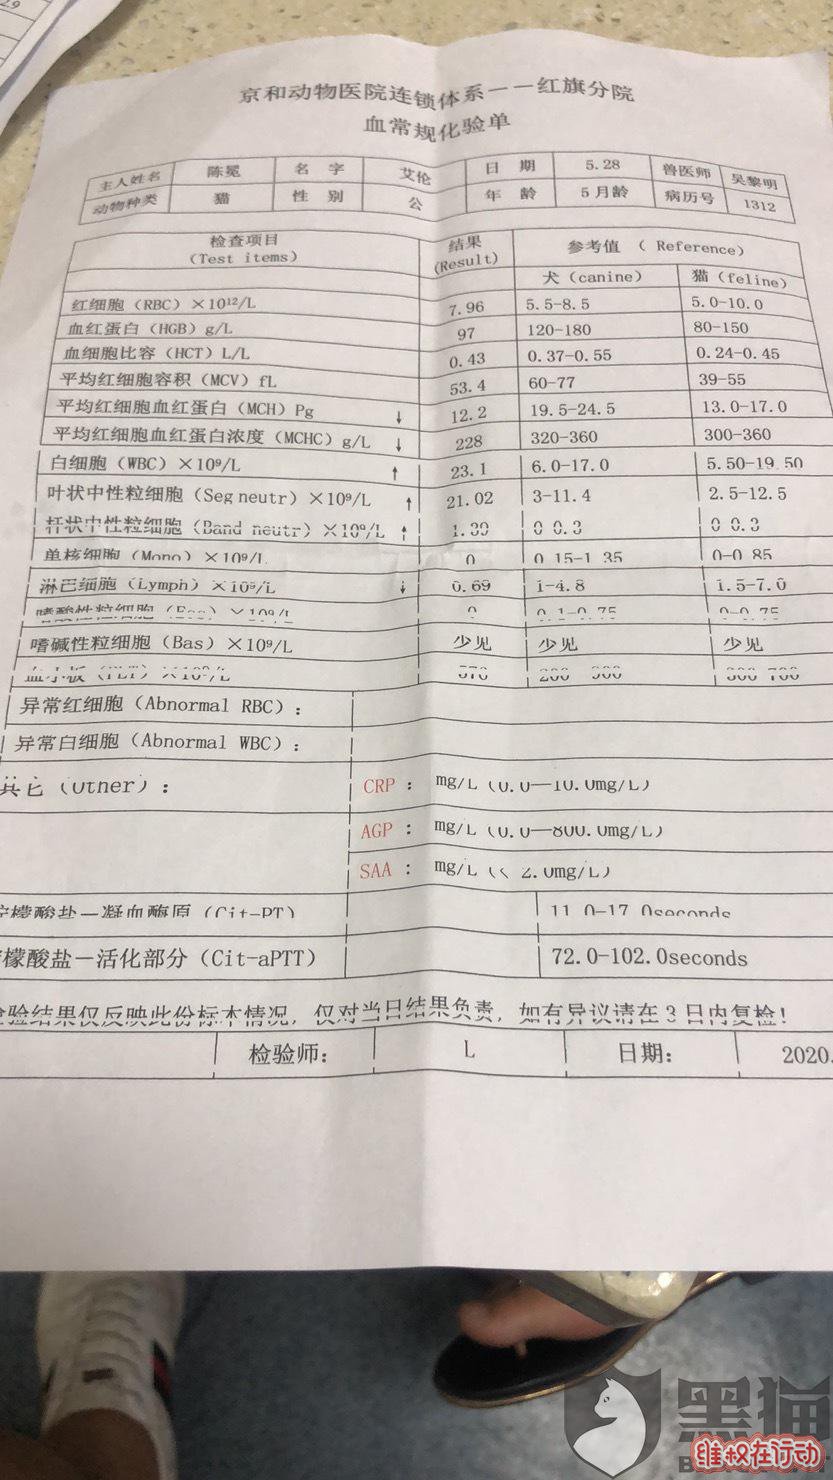 2.9
京和动物医院连锁体系一一红旗分院
血常规化验单
主人姓名 陈冕 名 字 艾伦 日 期 5.28 兽医师 吴黎明
动物种类 猫 性 别 公 年 龄 5月龄 病历号 1312
检查项目 结果 参考值 ( Reference)
(Test items) (Result) 犬(canine) 猫(feline)
红细胞(RBC)×10¹²/L 7.96 5.5-8.5 5.0-10.0
血红蛋白(HGB)g/L 97 120-180 80-150
血细胞比容(HCT)L/L 0.43 0.37-0.55 0.24-0.45
平均红细胞容积(MCV)fL 53.4 60-77 39-55
平均红细胞血红蛋白(MCH)Pg ↓ 12.2 19.5-24.5 13.0-17.0
平均红细胞血红蛋白浓度(MCHC)g/L ↓ 228 320-360 300-360
白细胞(WBC)×10⁹/L ↑ 23.1 6.0-17.0 5.50-19.50
叶状中性粒细胞(Seg neutr)×10⁹/L ↑ 21.02 3-11.4 2.5-12.5
杆状中性粒细胞(Band neutr)×10⁹/L ↑ 0-0.3 0-0.3
单核细胞(Mono)×10⁹/L 0 0.15-1.35 0-0.85
淋巴细胞(Lymph)×10⁹/L ↓ 0.69 1-4.8 1.5-7.0
嗜酸性粒细胞(Eos)×10⁹/L 0 0.1-0.75 0-0.75
嗜碱性粒细胞(Bas)×10⁹/L 少见 少见 少见
血小板(PLT)×10⁹/L
异常红细胞(Abnormal RBC):
异常白细胞(Abnormal WBC):
其它(Other): CRP: mg/L(0.0—10.0mg/L)
AGP: mg/L(0.0—800.0mg/L)
SAA: mg/L(< 2.0mg/L)
柠檬酸盐一凝血酶原(Cit-PT) 11.0-17.0seconds
檬酸盐一活化部分(Cit-aPTT) 72.0-102.0seconds
检验结果仅反映此份标本情况,仅对当日结果负责,如有异议请在3日内复检!
检验师: L 日期: 2020.
黑猫
维权在行动